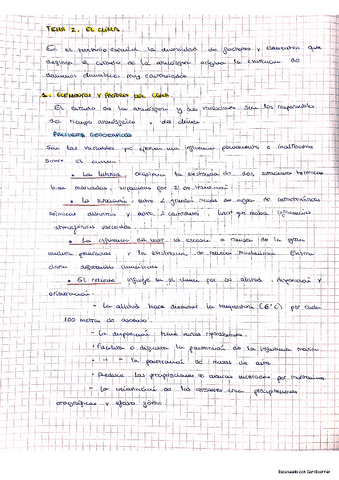 TEMA 2. EL CLIMA.
En el territorio español la diversidad de factores y elementos que
definen el estado de la atmósfera origina la existencia de
dominios climáticos muy contrastados.
1. ELEMENTOS Y FACTORES DEL CLIMA.
El estado de la atmósfera y sus variaciones son los responsables
del tiempo atmosférico y del clima.
FACTORES GEOGRÁFICOS
Son las variables que ejercen una influencia permanente e inalterable
sobre el clima:
• La latitud: la existencia de dos estaciones térmicas
bien marcadas, separadas por 2
• La situación: entre 2 grandes masas de agua de características
térmicas distintas y entre 2 continentes, hace que reciba influencias
atmosféricas variadas.
• La influencia del mar es escasa a causa de la gran
anchura peninsular y la existencia de relieves montañosos. Existen
claras diferencias climáticas.
• El relieve: influye en el clima por su altitud, disposición y
orientación:
- La altitud hace disminuir la temperatura (6°C) por cada
100 metros de ascenso.
- La disposición tiene varias
• Facilita o dificulta la penetración de la influencia marina
• " " " la penetración de masas de aire
• Reduce las precipitaciones en cuencas encerradas por montañas.
- La orientación de las crea precipitaciones
orográficas y efecto föhn.
Escaneado con CamScanner